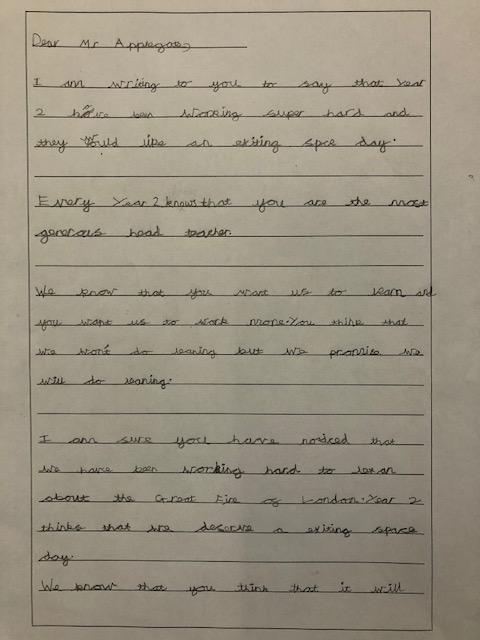 Dear Mr Applegate,
I am writing to you to say that Year
2 have been working super hard and
they would like an exiting spce day.
Every Year 2 knows that you are the most
generous head teacher.
We know that you want us to learn and
you want us to work more. You think that
we won't do leaning but we promise we
will do leaning.
I am sure you have noticed that
we have been working hard to
about the Great Fire of London. Year 2
thinks that we deserve a exiting space
day.
We know that you think that it will